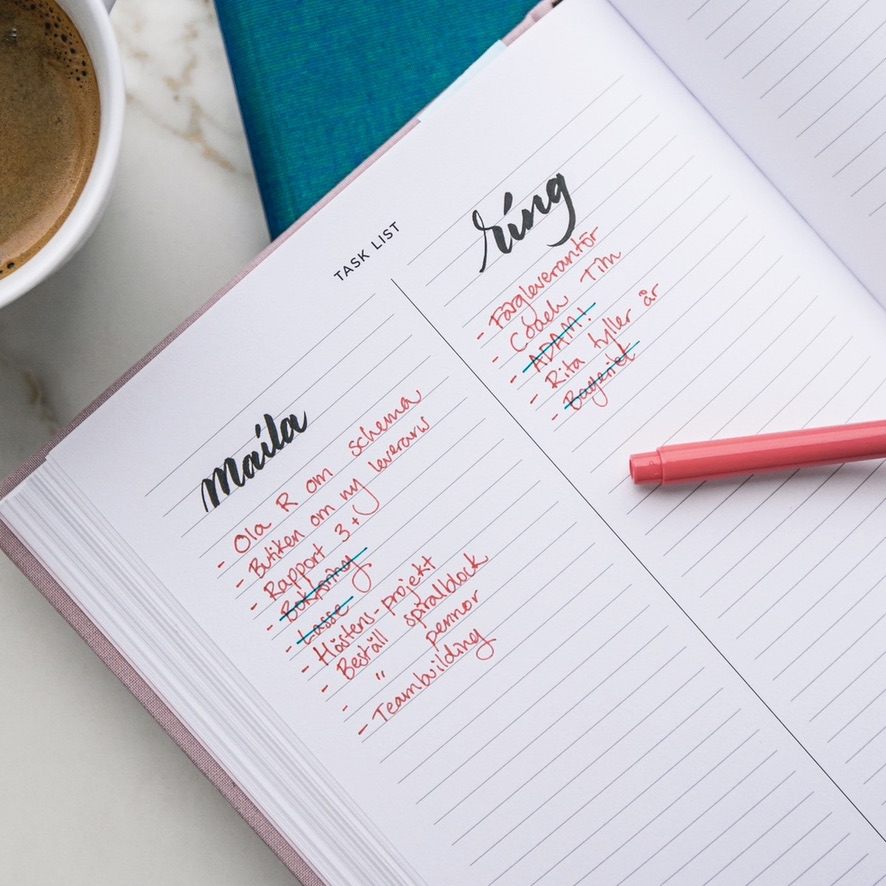 TASK LIST
Maila
- Ola R om schema
- Butiken om ny leverans
- Rapport 3+y
- Bokföring
- Lasse
- Höstens-projekt
- Beställ spiralblock
- " pennor
- Teambuilding
ring
- Färgleverantör
- Coach Tim
- ADAM!
- Rita fyller år
- Bageriet